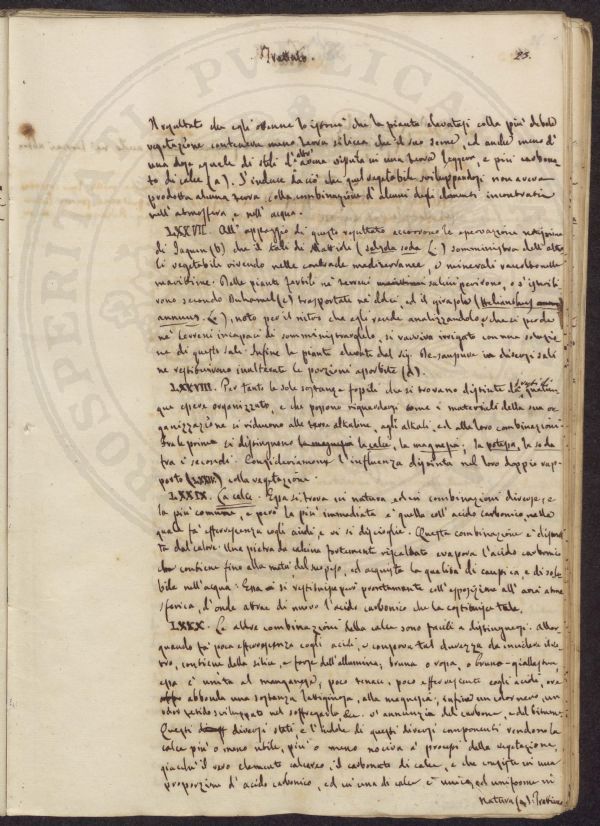 Trattato.
25.
Il resultato che egli ottenne lo istruì che la pianta elevatasi colla più debole
vegetazione conteneva meno terra silicea che il suo seme, ed anche meno d'
una dose eguale di stili d'altra avena vissuta in una terra leggera, e più carbona-
to di calce (a). S'induce da ciò che quel vegetabile sviluppandosi non aveva
prodotta alcuna terra colla combinazione d'alcuni degli elementi incontrati
nell'atmosfera, e nell'acqua.
LXXVII. All'appoggio di questo resultato accorrono le osservazione
di Jaquin (b) che il kali di (salsola soda L.) somministra dell'alca-
li vegetabile vivendo nelle contrade mediterranee, e minerale raccolto nelle
marittime. Delle piante fertili ne' terreni salini perivono, o s'isterili
vono secondo Duhamel (c) trasportate ne' dolci, ed il girasole (Helianthus
annuus. L.), noto per il nitro che egli rende analizzandolo, e che ci perde
ne' terreni incapaci di somministrarglelo, si ravviva irrigato con una soluzio-
ne di questo sale. Infine le piante elevate dal Sig. De-Saussure in diversi sali
ne restituivono inalterate le porzioni assorbite (d).
LXXVIII. Per tanto le sole sostanze fossili che si trovano distinte
que essere organizzato, e che possono riguardarsi come i materiali della sua or-
ganizzazione si riducono alle terre alkaline, agli alkali, ed alle loro combinazioni.
Fra le prime si distinguono la calce, la magnesia. la potassa, la soda
tra i secondi. Consideriamone l'influenza distinta nel loro doppio rap-
porto (LXXIII) colla vegetazione.
LXXIX. La calce. Essa si trova in natura ed in combinazioni diverse, e
la più comune, e però la più immediata è quella coll'acido carbonico, nella
quale fa effervescenza cogli acidi, e vi si discioglie. Questa combinazione è
ta dal calore. Una pietra da calcina fortemente riscaldata evapora l'acido carbonico
che contiene fino alla metà del suo peso, ed acquista la qualità di caustica, e di solu-
bile nell'acqua: Essa si restituisce però prontamente coll'esposizione all'aria atmo-
sferica, d'onde attrae di nuovo l'acido carbonico che la costituisce tale.
LXXX. Le altre combinazioni della calce sono facili a distinguersi. Allor-
quando fa poca effervescenza cogli acidi, e conserva tal durezza da incidere il ve-
tro, contiene della silice, e forse dell'allumina, bruna o rossa, o bruno-giallastra,
essa è unita al manganese, poco tenace, poco effervescente cogli acidi, ove
abbonda una sostanza lattiginosa, alla magnesia, infine un color nero, un
odor fetido sviluppato nel soffregarlo &c. v'annunzia del carbone, e del bitume.
Questi diversi stati, e l'indole di questi diversi componenti rendono la
calce più o meno utile, più o meno nociva a' processi della vegetazione,
giacchè il vero elemento calcareo, il carbonato di calce, e che consiste in una
proporzione d'acido carbonico, ed in una di calce è unica, ed uniforme in
natura (a).